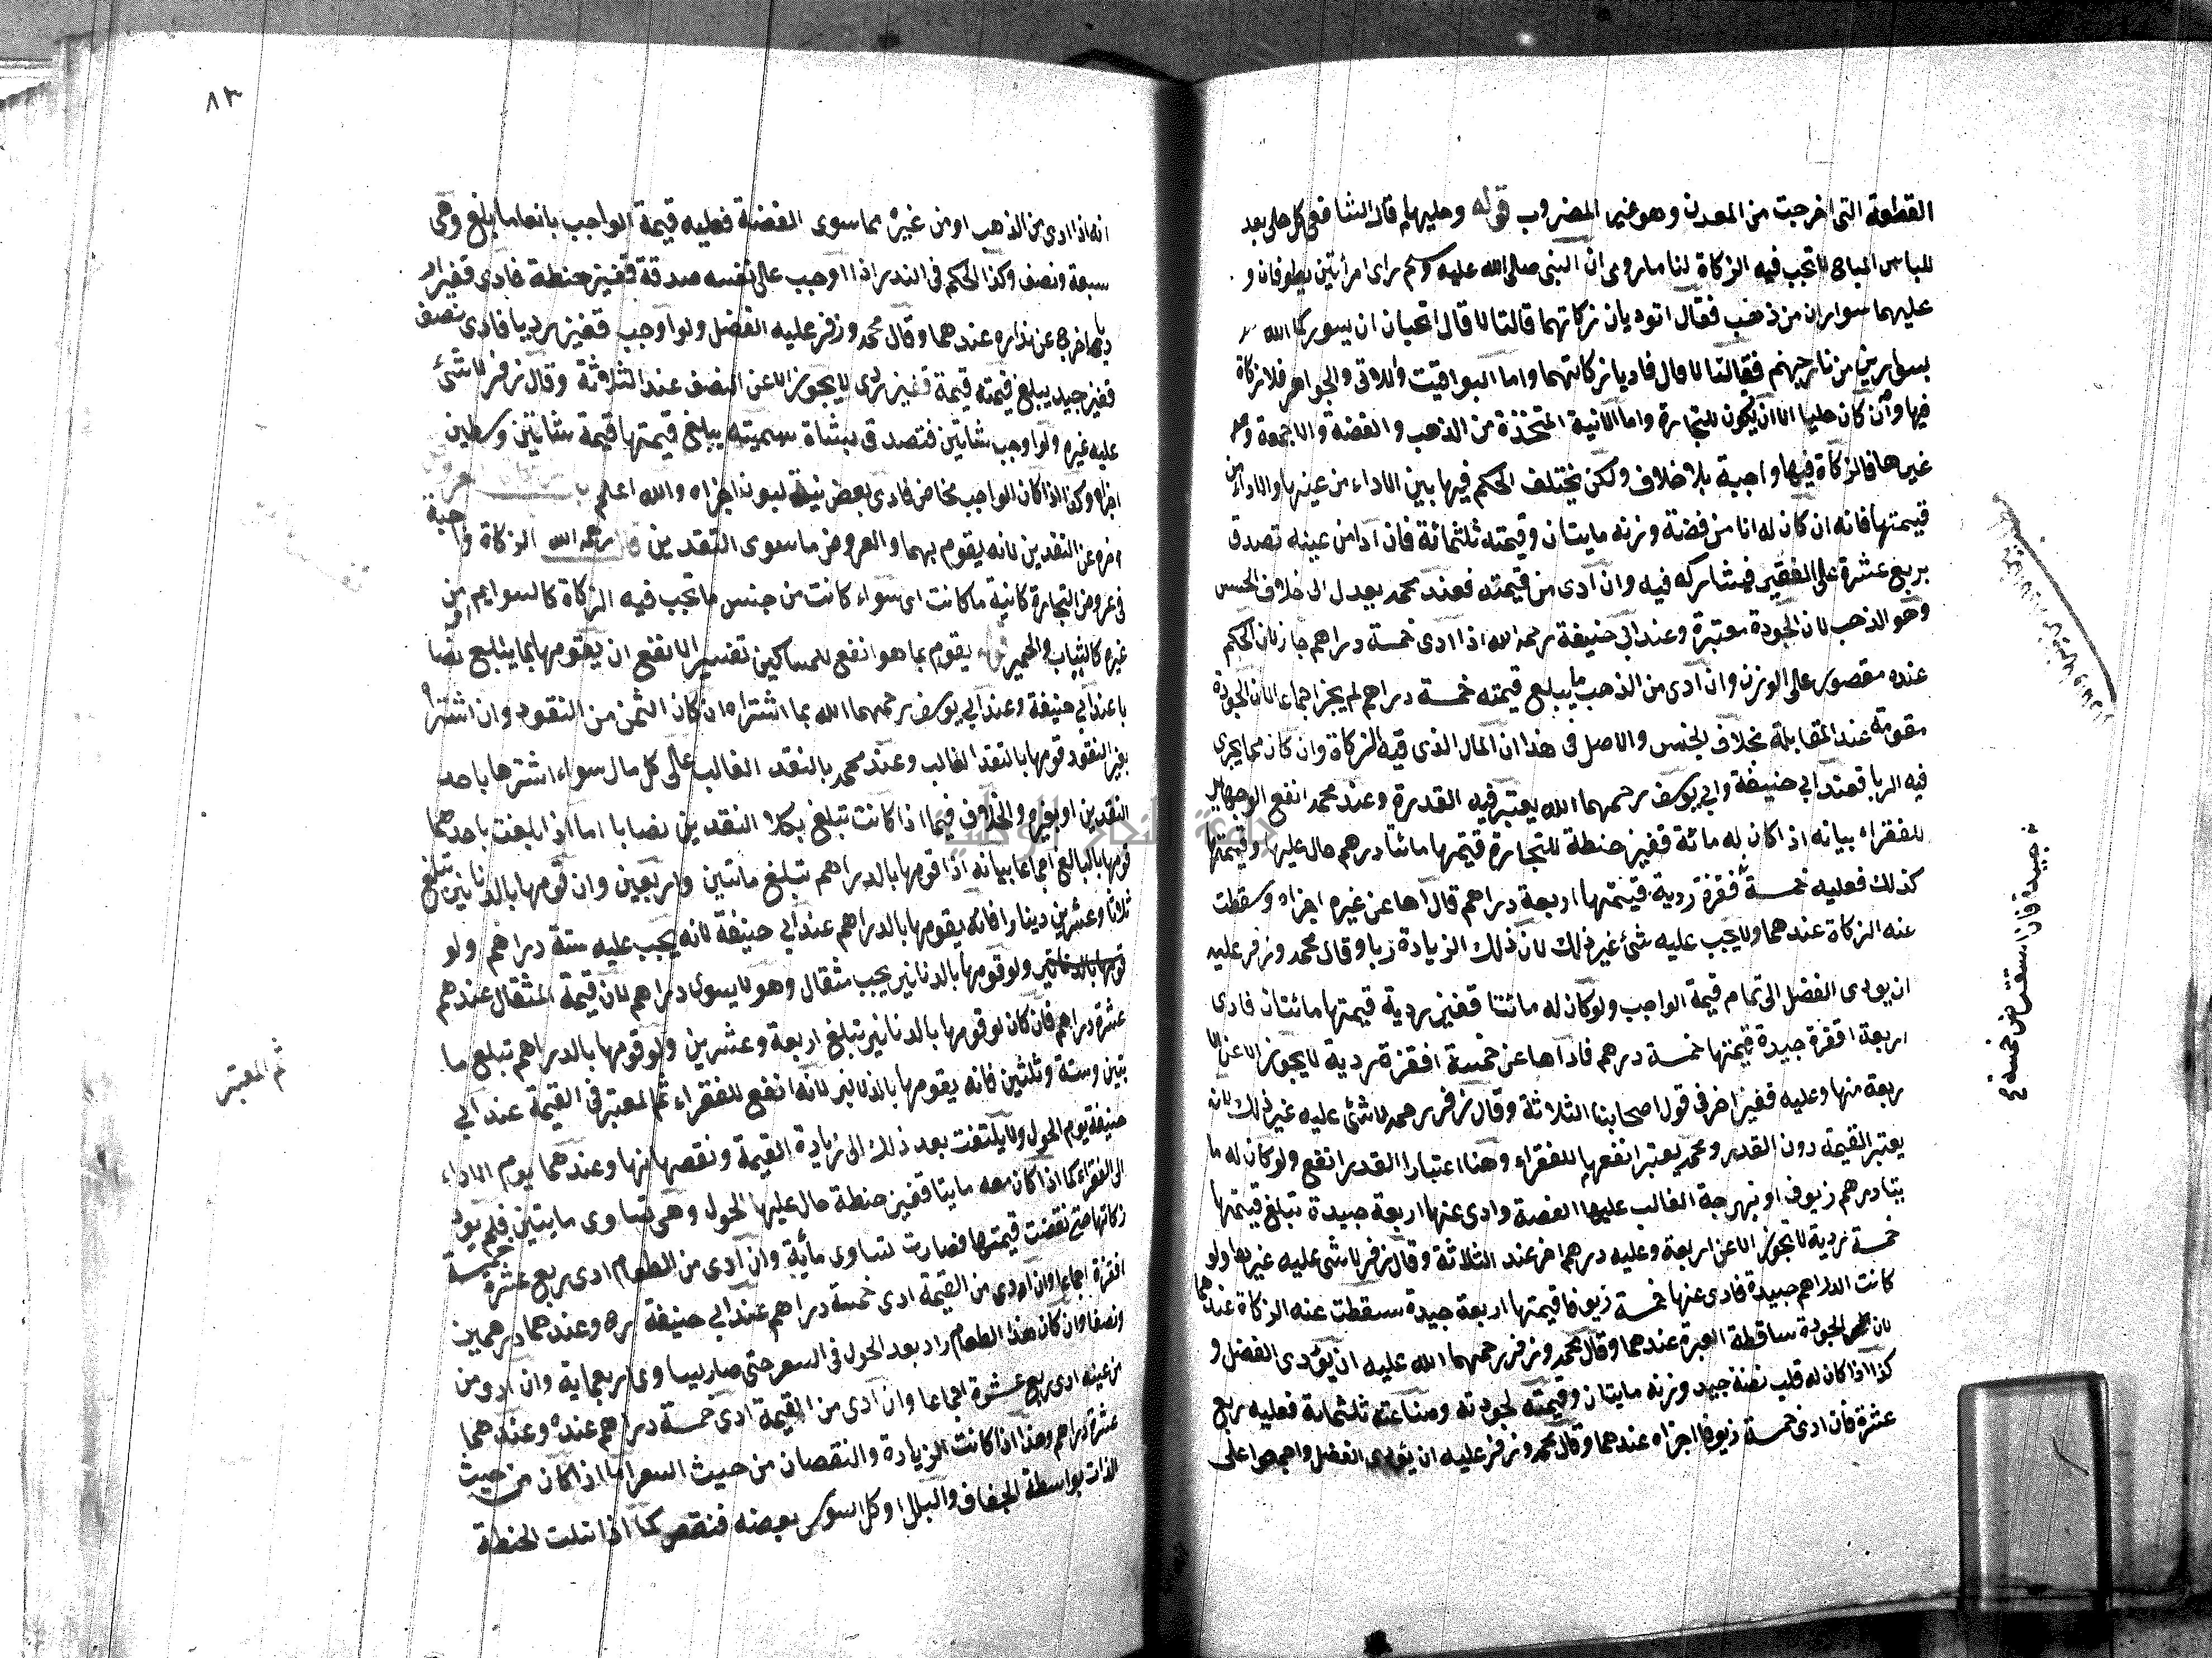 القطعة التى اخرجت من المعدن وهو غير المضروب قوله وحليهما قال الشافعى كل حلى يعد
للباس المباح لا تجب فيه الزكاة لنا ما روى ان النبى صلى الله عليه وسلم راى امرأتين يطوفان و
عليهما سواران من ذهب فقال اتوديان زكاتهما قالتا لا قال اتحبان ان يسوركما الله
بسوارين من نار جهنم فقالتا لا قال فاديا زكاتهما واما اليواقيت واللالى والجواهر فلا زكاة
فيها وان كان حليا الا ان يكون للتجارة واما الانية المتخذة من الذهب والفضة والاجمعة و
غيرها فالزكاة فيها واجبة بلا خلاف ولكن يختلف الحكم فيها بين الاداء من عينها والاداء من
قيمتها فانه ان كان له انا من فضة وزنه مايتان وقيمته ثلثمائة فان ادا من عينه تصدق
بربع عشرة على الفقير فيشاركه فيه وان ادى من قيمته فعند محمد يعدل الى خلاف الجنس
وهو الذهب لان الجودة معتبرة وعند ابي حنيفة رحمه الله اذا ادى خمسة دراهم جاز لان الحكم
عنده مقصور على الوزن وان ادى من الذهب ما يبلغ قيمته خمسة دراهم لم يجز اجماعا لان الجودة
مقومة عند المقابلة بخلاف الجنس والاصل فى هذا ان المال الذى فيه الزكاة وان كان مما يجرى
فيه الربا فعند ابي حنيفة وابي يوسف رحمهما الله يعتبر فيه القدرة وعند محمد انفع الوجهين
للفقراء بيانه اذا كان له مائة قفيز حنطة للتجارة قيمتها مائتا درهم حال عليها وقيمتها
كذلك فعليه خمسة اقفزة ردية قيمتها اربعة دراهم قال اداها عن غيره اجزاه وسقطت
عنه الزكاة عندهما ولا يجب عليه شئ غير ذلك لان ذلك الزيادة ربا وقال محمد وزفر عليه
ان يودى الفضل الى تمام قيمة الواجب ولو كان له مائتا قفيز ردية قيمتها مائتان فادى
اربعة اقفزة جيدة قيمتها خمسة درهم فاداها عن خمسة اقفزة ردية لا يجوز الا عن الا
ربعة منها وعليه قفيز اخر فى قول اصحابنا الثلاثة وقال زفر رحمه لا شئ عليه غير ذلك لانه
يعتبر القيمة دون القدر ومحمد يعتبر انفعهما للفقراء وهنا اعتبار القدر انفع ولو كان له ما
يتا درهم زيوف او نبهرجة الغالب عليها الفضة وادى عنها اربعة جيدة تبلغ قيمتها
خمسة ردية لا تجوز الا عن اربعة وعليه درهم اخر عند الثلاثة وقال زفر لا شى عليه غيرها ولو
كانت الدراهم جيدة فادى عنها خمسة زيوفا قيمتها اربعة جيدة سقطت عنه الزكاة عندهما
لان الجودة ساقطة العبرة عندهما وقال محمد وزفر رحمهما الله عليه ان يؤدى الفضل و
كذا اذا كان له قلب فضة جيد وزنه مايتان وقيمته لجودته وصناعته ثلثمائة فعليه ربع
عشرة فان ادى خمسة زيوفا اجزاه عندهما وقال محمد وزفر عليه ان يؤدى الفضل واجمعوا على
جيدة فان استقرض خمسة
٨٣
انه اذا ادى من الذهب او من غيره مما سوى الفضة فعليه قيمة الواجب بالغا ما بلغ وهى
سبعة ونصف وكذا الحكم فى النذر اذا اوجب على نفسه صدقة قفيز حنطة فادى قفيزا ر
ديا خرج عن نذره عندهما وقال محمد وزفر عليه الفضل ولو اوجب قفيز رديا فادى نصف
قفيز جيد يبلغ قيمته قيمة قفيز ردى لا يجوز الا عن النصف عند الثلاثة وقال زفر لا شئ
عليه غيره ولو اوجب شاتين فتصدق بشاة سمينة يبلغ قيمتها قيمة شاتين وسطين
اجزاه وكذا اذا كان الواجب مخاض فادى بعض بنت لبون اجزاه والله اعلم
اخره عن النقدين لانه يقوم بهما والعروض ما سوى النقدين رحمه الله الزكاة واجبة
فى عروض التجارة كائنة ما كانت اى سواء كانت من جنس ما تجب فيه الزكاة كالسوايم او من
غيره كالثياب والحمير يقوم بما هو انفع للمساكين تفسير الانفع ان يقومها بما يبلغ نصا
با عند ابي حنيفة وعند ابي يوسف رحمهما الله بما اشتراه ان كان الثمن من النقود وان اشتراه
بغير النقود قومها بالنقد الغالب وعند محمد بالنقد الغالب على كل مال سواء اشترها باحد
النقدين او بغيره والخلاف فيما اذا كانت تبلغ بكلا النقدين نصابا اما اذا بلغت باحدهما
قومها بالبالغ اجماعا بيانه اذا قومها بالدراهم تبلغ مائتين واربعين وان قومها بالدنانير تبلغ
ثلاثا وعشرين دينارا فانه يقومها بالدراهم عند ابي حنيفة لانه يجب عليه ستة دراهم ولو
قومها بالدنانير ولو قومها بالدنانير يجب مثقال وهو لا يسوى دراهم لان قيمة المثقال عندهم
عشرة دراهم فان كان لو قومها بالدنانير تبلغ اربعة وعشرين ولو قومها بالدراهم تبلغ ما
يتين وستة وثلثين فانه يقومها بالدنانير لانه انفع للفقراء ثم المعتبر فى القيمة عند ابي
حنيفة يوم الحول ولا يلتفت بعد ذلك الى زيادة القيمة ونقصانها وعندهما يوم الاداء
الى الفقراء كما اذا كان معه مايتا قفيز حنطة حال عليها الحول وهى تساوى مايتين فلم يود
زكاتها حتى نقصت قيمتها فصارت تساوى مأية وان ادى من الطعام ادى ربع عشرة خمسة
اقفزة اجماعا وان ادى من القيمة ادى خمسة دراهم عند ابي حنيفة ره وعندهما درهمين
ونصفا وان كان هذا الطعام زاد بعد الحول فى السعر حتى صار يساوى اربعماية وان ادى من
من عينه ادى ربع عشرة اجماعا وان ادى من القيمة ادى خمسة دراهم عنده وعندهما
عشرة دراهم وهذا اذا كانت الزيادة والنقصان من حيث السعر اما اذا كان من حيث
الذات بواسطة الجفاف والبلل او كل السوس بعضه فنقص كما اذا ابتلت الحنطة
ثم المعتبر